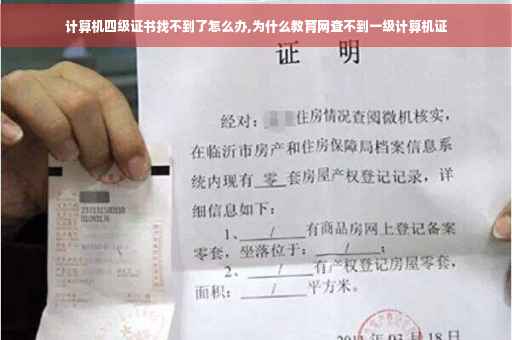 计算机四级证书找不到了怎么办,为什么教育网查不到一级计算机证
证 明
经对: 住房情况查阅微机核实,
在临沂市房产和住房保障局档案信息系
统内现有 零 套房屋产权登记记录,详
细信息如下:
1、 / 有商品房网上登记备案
零套,坐落位于: / ;
2、 / 有产权登记房屋零套,
面积: / 平方米。